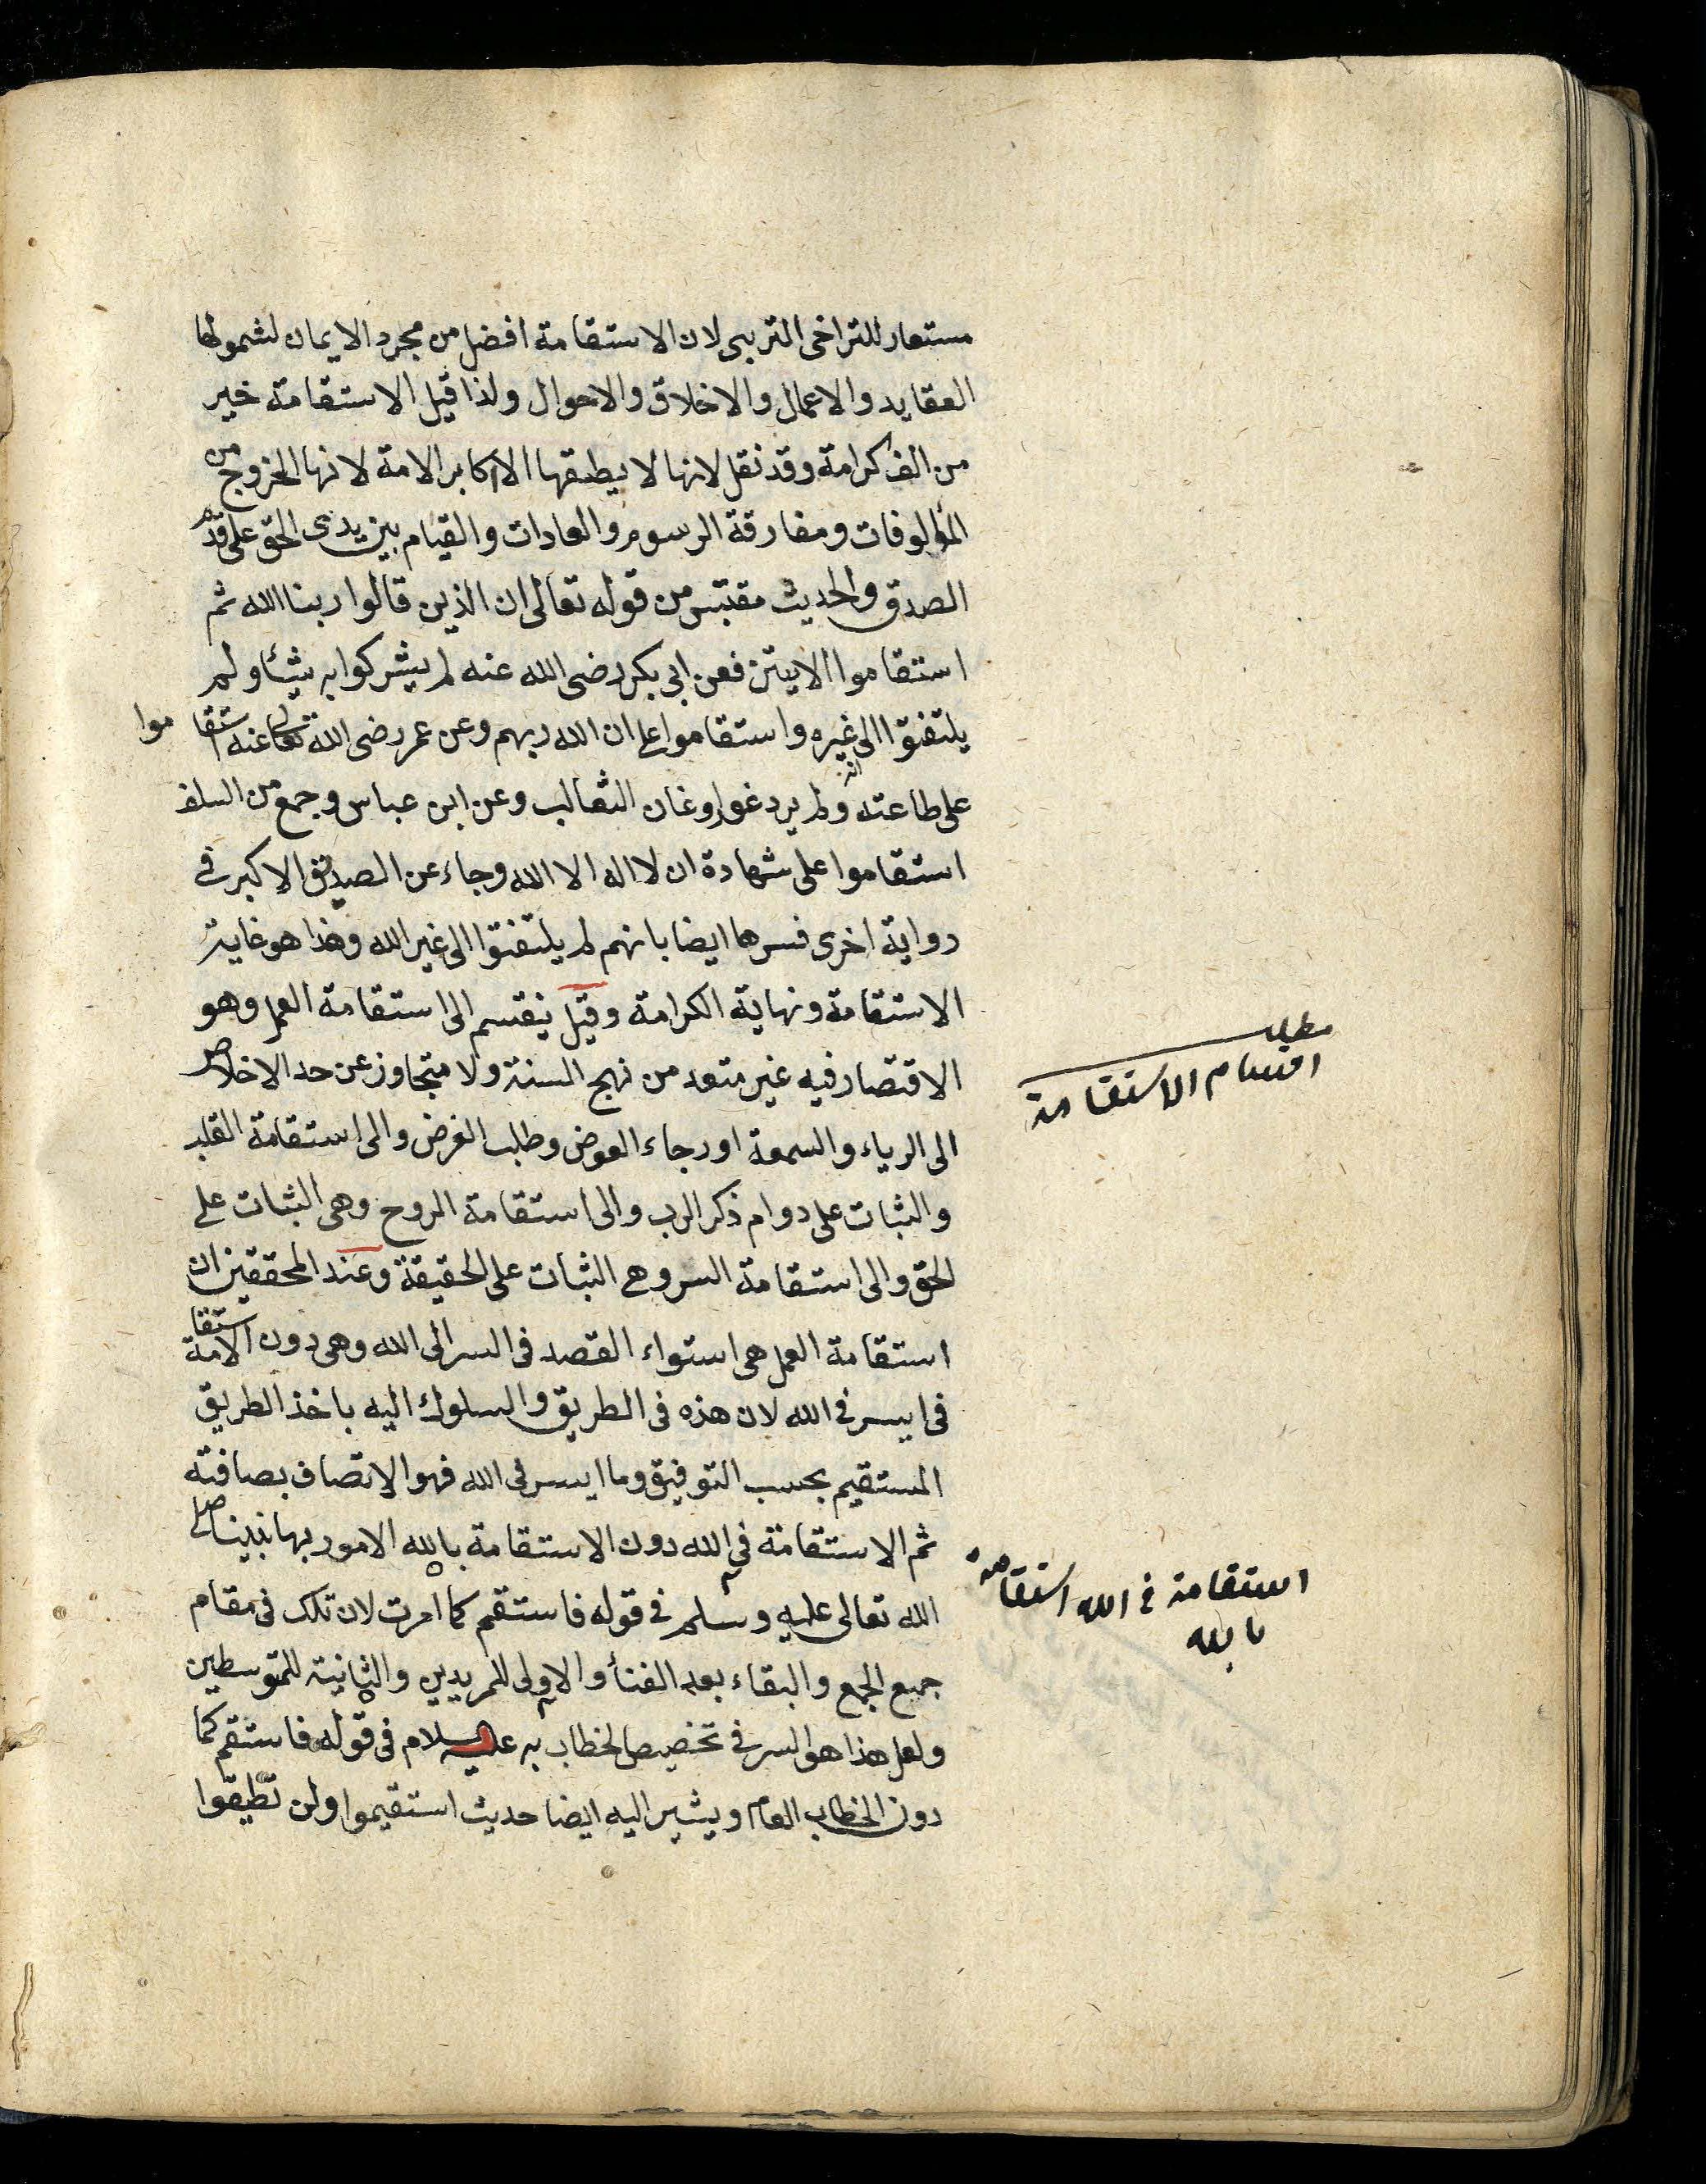 مستعار للتراخى المتربى لان الاستقامة افضل من مجرد الايمان لشمولها
العقايد والاعمال والاخلاق والاحوال ولذا قيل الاستقامة خير
من الف كرامة وقد نقل لانها لا يطيقها الا اكابر الامة لانها الخروج من
المألوفات ومفارقة الرسوم والعادات والقيام بين يدى الحق على قدم
الصدق والحديث مقتبس من قوله تعالى ان الذين قالوا ربنا الله ثم
استقاموا الايتن فعن ابى بكر رضى الله عنه لم يشركوا به شيئا ولم
يلتفتوا الى غيره واستقاموا على ان الله ربهم وعن عمر رضى الله تعالى عنه استقاموا
على طاعته ولم يردغوا روغان الثعالب وعن ابن عباس وجمع من السلف
استقاموا على شهادة ان لا اله الا الله وجاء عن الصديق الاكبر فى
رواية اخرى فسرها ايضا بانهم لم يلتفتوا الى غير الله وهذا هو غاية
الاستقامة ونهاية الكرامة وقيل ينقسم الى استقامة العمل وهو
الاقتصار فيه غير متعد من نهج السنة ولا متجاوز عن حد الاخلاص
الى الرياء والسمعة او رجاء العوض وطلب الغرض والى استقامة القلب
والثبات على دوام ذكر الرب والى استقامة الروح وهى الثبات على
الحق والى استقامة السر وهى الثبات على الحقيقة وعند المحققين ان
استقامة العمل هى استواء القصد فى السر الى الله وهى دون الاستقامة
فى ايسر فى الله لان هذه فى الطريق والسلوك اليه باخذ الطريق
المستقيم بحسب التوفيق وما ايسر فى الله فهو الاتصاف بصافته
ثم الاستقامة فى الله دون الاستقامة بالله الامور بها نبينا صلى
الله تعالى عليه وسلم فى قوله فاستقم كما امرت لان تلك فى مقام
جميع الجمع والبقاء بعد الفنأ والاولى للمريدين والثانية للمتوسطين
ولعل هذا هو السر فى تخصيص الخطاب به عليه السلام فى قوله فاستقم كما
دون الخطاب العام ويشير اليه ايضا حديث استقيموا ولن تطيقوا
مطلب
اقسام الاستقامة
استقامة فى الله استقامة
بالله